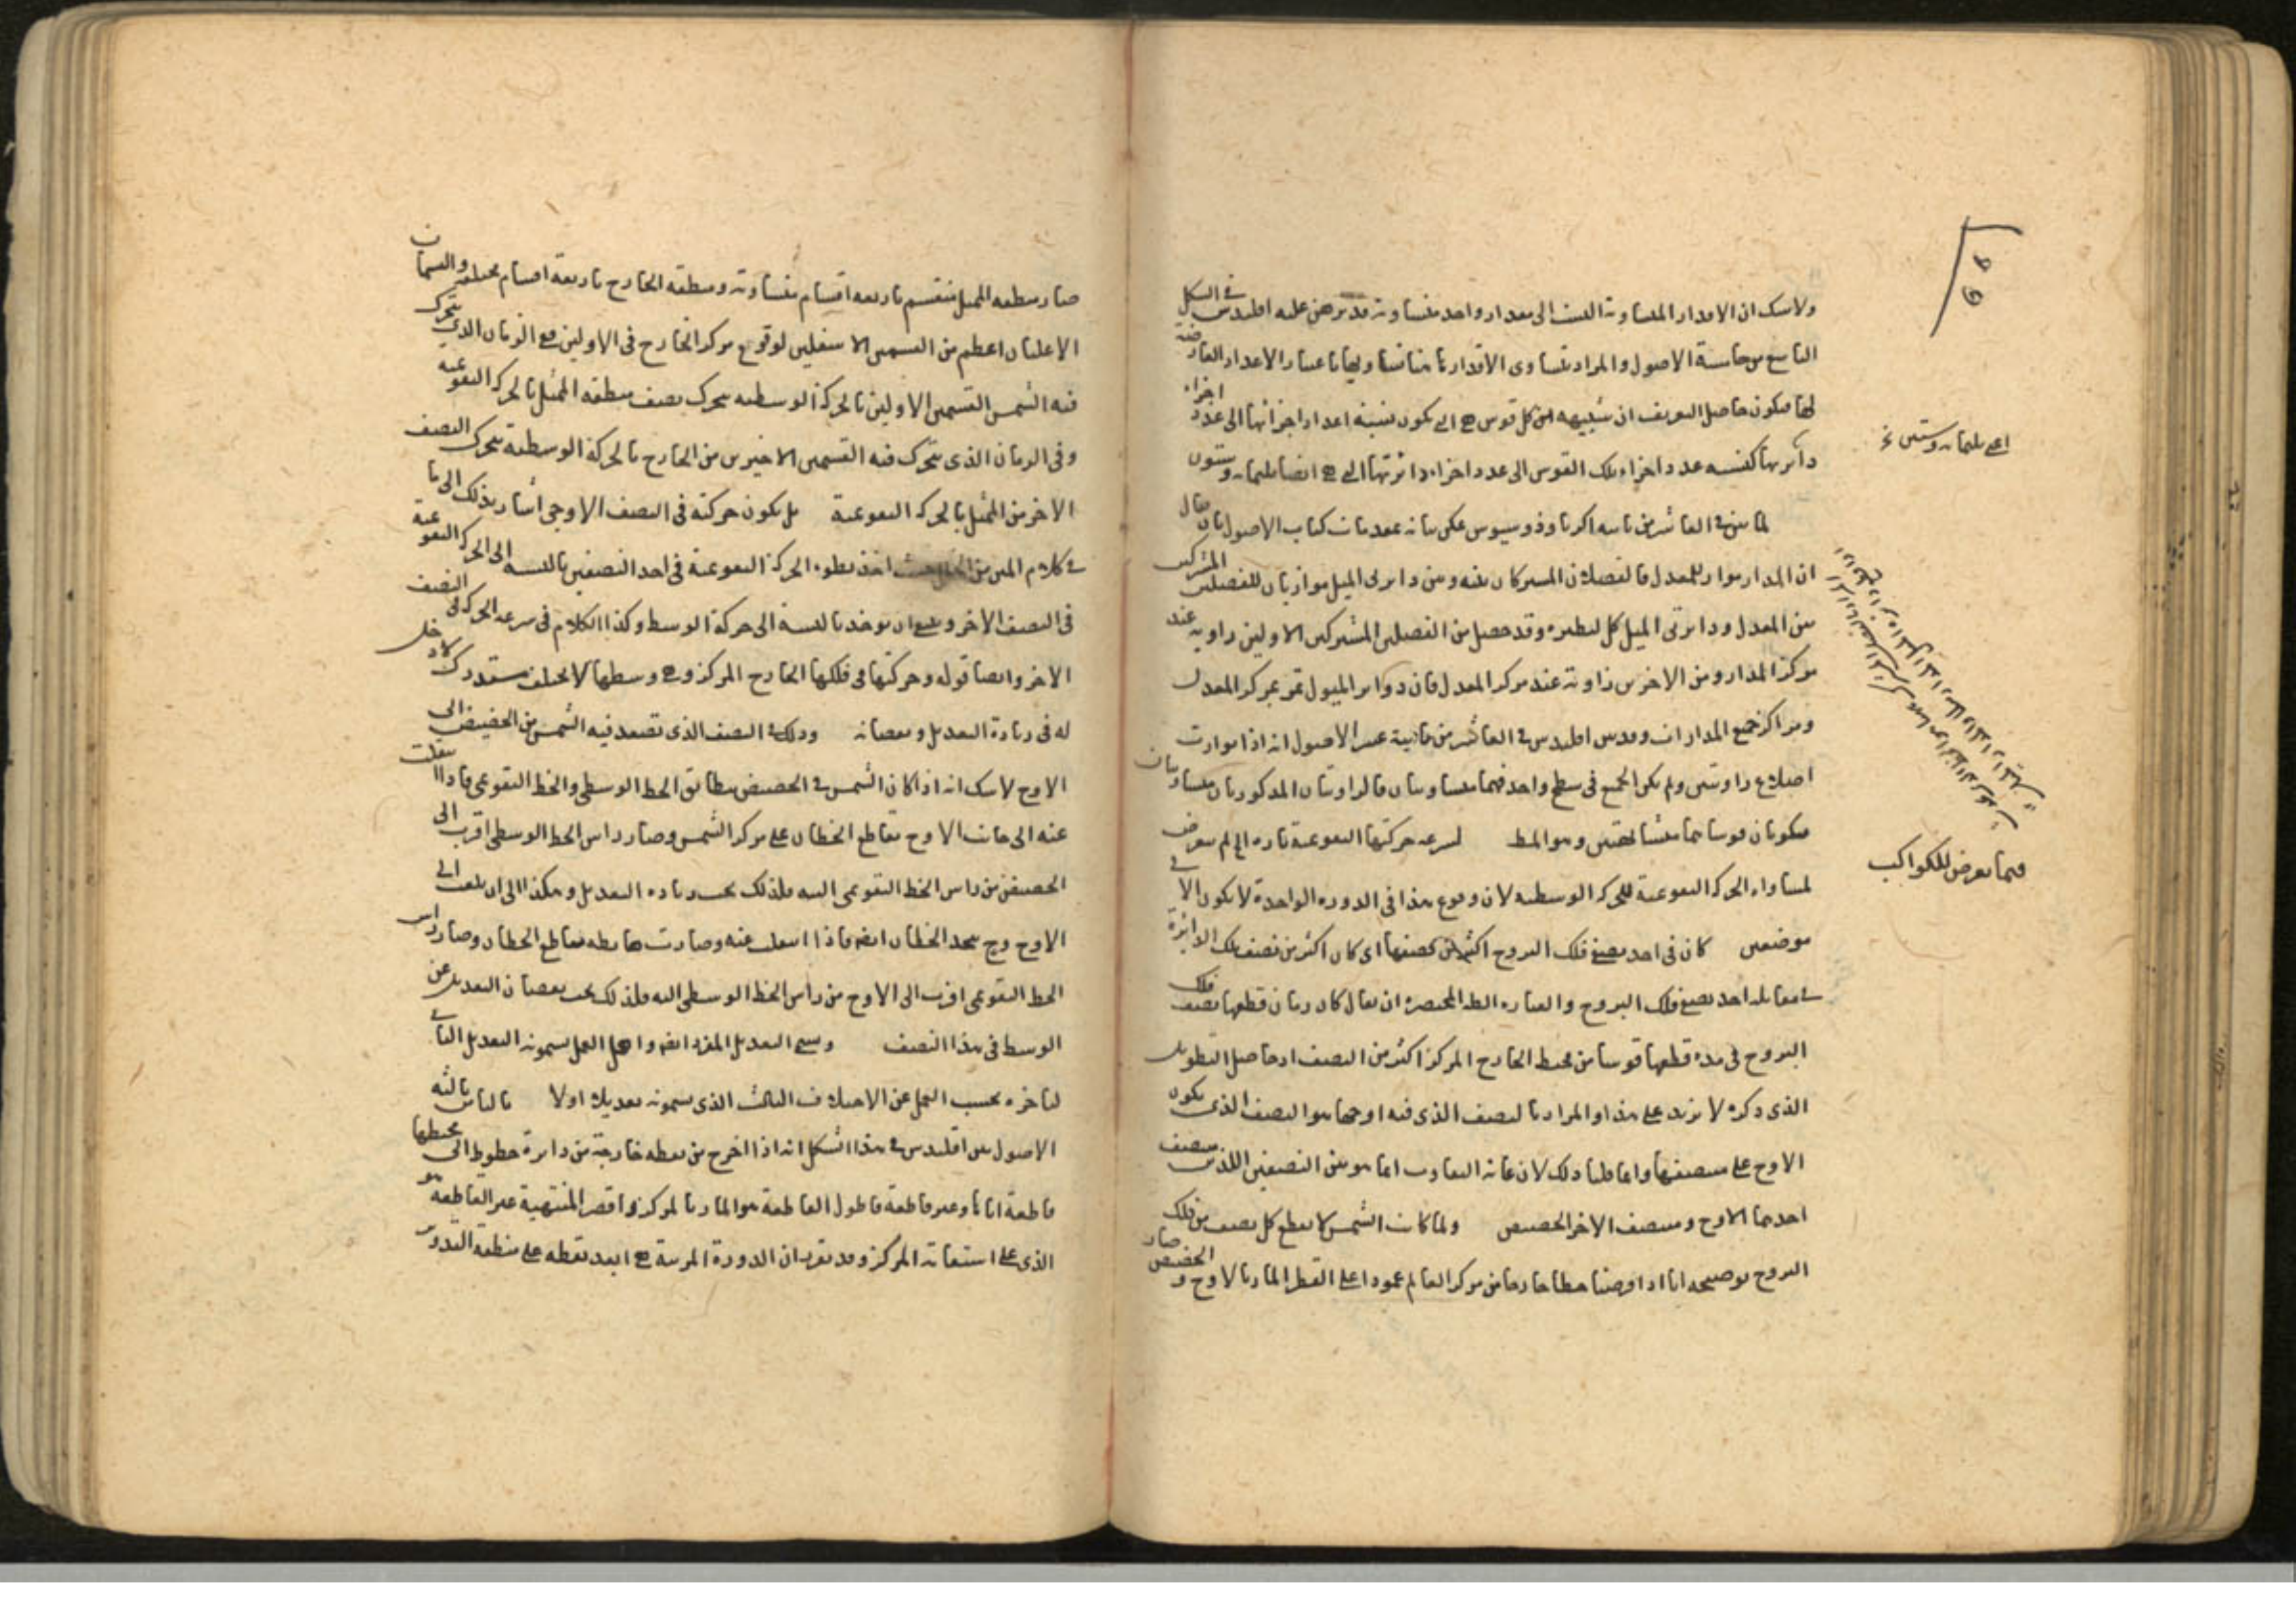 ولا شك ان الاقدار المتساوية النسب الى مقدار واحد متساوية قد برهن عليه اقليدس في الشكل
التاسع من خامسة الاصول والمراد بتساوى الاقدار هاهنا تساويها باعتبار الاعداد العارضة
لها فيكون حاصل التعريف ان شبيهه كل قوس هى التى يكون نسبة اعداد اجزائها الى عدد اجزاء
دائرتها كنسبه عدد اجزاء تلك القوس الى عدد اجزاء دائرتها التى هى ايضا ثلثمائه وستون
لما بين فى العاشر من ثانيه اكر ثاوذوسيوس يمكن بيانه بمقدمات كتاب الاصول بان يقال
ان المدار مواز للمعدل فالفصلان المشتركان بينه وبين دائرتى الميل موازيان للفصلين المشتركين
بين المعدل ودائرتى الميل كل لنظيره وقد حصل من الفصلين المشتركين الاولين زاوية عند
مركز المدار ومن الاخرين زاوية عند مركز المعدل فان دوائر الميول تمر بمركز المعدل
ومراكز جميع المدارات وقد بين اقليدس فى العاشر من حادية عشر الاصول انه اذا توازت
اضلاع زاويتين ولم يكن الجميع فى سطح واحد فهما متساويتان فالزاويتان المذكورتان متساويتان
فيكونان قوساهما متشابهتين وهو المط لسرعه حركتها التقويمية تاره الخ لم يتعرض
لمساواه الحركه التقويمية للحركه الوسطيه لان وقوع هذا فى الدوره الواحدة لا يكون الا فى
موضعين كان فى احد نصفى فلك البروج اكثر من نصفها اى كان اكثر من نصف تلك الدائرة
فى مقابله احد نصفى فلك البروج والعباره المختصره ان يقال كان زمان قطعها نصف فلك
البروج فى مده قطعها قوسا من محيط الخارج المركز اكثر من النصف اذ حاصل التطويل
الذى ذكره لا يزيد على هذا والمراد بالنصف الذى فيه اوجها هو النصف الذى يكون
الاوج على منتصفها وانما قلنا ذلك لان غاية التفاوت انما هو بين النصفين اللذين منتصف
احدهما الاوج ومنتصف الاخر الحضيض ولما كانت الشمس لا تقطع كل نصف من فلك
البروج توضيحه انا اذا فرضنا خطا خارجا من مركز العالم عمودا على القطر المار بالاوج والحضيض صار
اعنى ثلثمائه وستين
فيما يعرض للكواكب
صار منطقه الممثل منقسم باربعه اقسام متساويه ومنطقه الخارج باربعه اقسام مختلفه والقسمان
الاعليان اعظم من القسمين الاسفلين لوقوع مركز الخارج فى الاولين فمع الزمان الذى يتحرك
فيه الشمس القسمين الاولين بالحركة الوسطيه يتحرك نصف منطقه الممثل بالحركه التقويمية
وفى الزمان الذى يتحرك فيه القسمين الاخيرين من الخارج بالحركة الوسطية يتحرك النصف
الاخر من الممثل بالحركه التقويمية بل يكون حركته فى النصف الاوجى اشار بذلك الى ما
فى كلام المتن من حيث اخذ بطوء الحركة التقويمية فى احد النصفين بالنسبه الى الحركه التقويمية
فى النصف الاخر وينبغى ان يوخذ بالنسبة الى حركة الوسط وكذا الكلام فى سرعه الحركه فى النصف
الاخر وايضا قوله وحركتها فى فلكها الخارج المركز وهى وسطها لا يختلف مستدرك لا دخل
له فى زيادة التعديل ونقصانه وذلك فى النصف الذى تصعد فيه الشمس من الحضيض الى
الاوج لا شك انه اذا كان الشمس فى الحضيض يتطابق الخط الوسطى والخط التقويمى فاذا انتقلت
عنه الى جانب الاوج تقاطع الخطان على مركز الشمس وصار راس الخط الوسطى اقرب الى
الحضيض من راس الخط التقويمى اليه فلذلك يجب زياده التعديل وهكذا الى ان بلغت الى
الاوج وح يتحد الخطان ايضا فاذا انتقلت عنه وصارت هابطه تقاطع الخطان وصار راس
الخط التقويمى اقرب الى الاوج من راس الخط الوسطى اليه فلذلك يجب نقصان التعديل عن
الوسط فى هذا النصف ويسمى التعديل المفرد ايضا واهل العمل يسمونه التعديل الثانى
لتاخره بحسب العمل عن الاختلاف الثالث الذى يسمونه تعديلا اولا ثالثه
الاصول بين اقليدس فى هذا الشكل انه اذا اخرج من نقطه خارجة من دائرة خطوط الى محيطها
قاطعة اياها وغير قاطعة فاطول القاطعة هو المار بالمركز واقصر المنتهية غير القاطعه هو
الذى على استقامة المركز وقد تقرر ان الذروة المرئية هى ابعد نقطه على منطقه التدوير